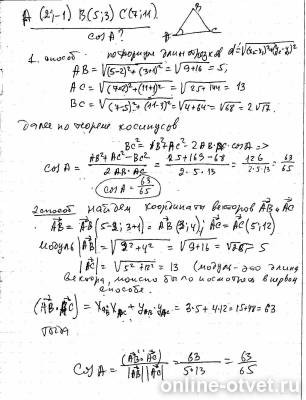 A (2;-1) B(5;3) C(7;11).
cos A?
B
A
C
1. способ. по формуле длин отрезков d=√(x₂-x₁)²+(y₂-y₁)²
AB = √(5-2)²+(3+1)² = √9+16 = 5;
AC = √(7-2)²+(11+1)² = √25+144 = 13
BC = √(7-5)²+(11-3)² = √4+64 = √68 = 2√17.
Далее по теореме косинусов
BC² = AB²+AC²-2AB·AC·cosA =>
cosA = AB²+AC²-BC² / 2AB·AC = 25+169-68 / 2·5·13 = 126 / 2·5·13 = 63/65
cosA = 63/65
2 способ. найдем координаты векторов AB и AC
AB = AB(5-2; 3+1) = AB(3;4); AC = AC(5;12)
модуль |AB| = √3²+4² = √9+16 = √25 = 5
|AC| = √5²+12² = 13 (модуль - это длина
вектора, можно было посмотреть в первом
способе.
(AB·AC) = x_AB·x_AC + y_AB·y_AC = 3·5+4·12 = 15+48 = 63
тогда
cosA = (AB·AC) / |AB||AC| = 63 / 5·13 = 63/65
online-otvet.ru